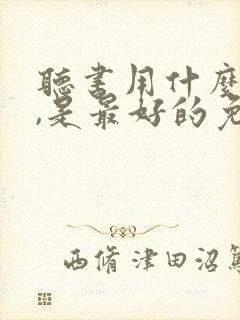 聽書用什麼
,是最好的免
西脩津田沼駕